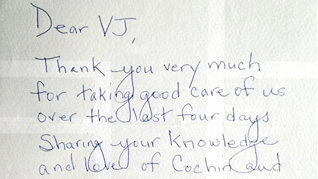 Dear VJ,
Thank you very much
for taking good care of us
over the last four days.
Sharing your knowledge
and love of Cochin and